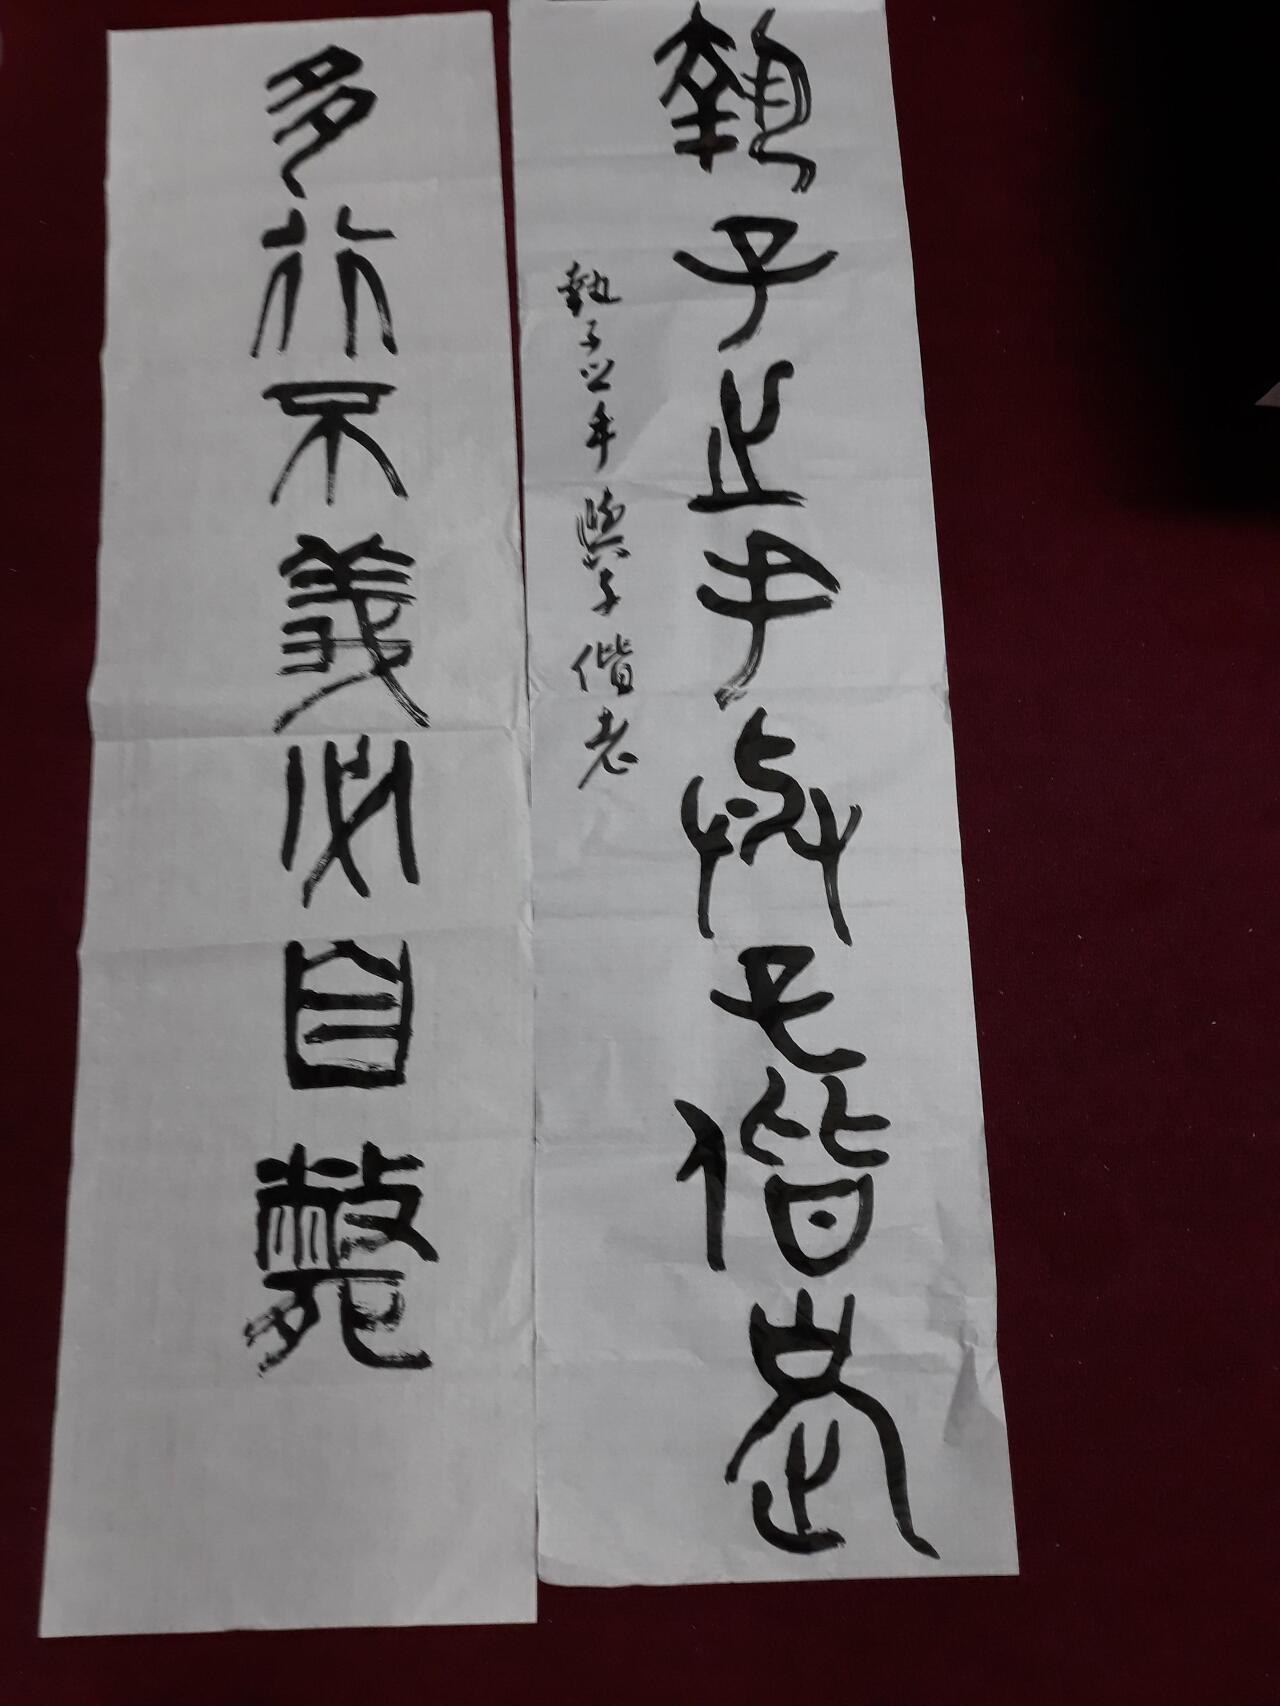 執子之手與子偕老
執子之手與子偕老
多行不義必自斃